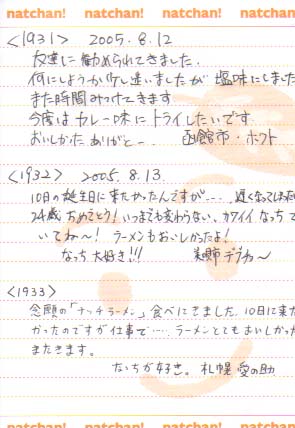 natchan! natchan! natchan! natchan!
<1931> 2005.8.12
友達に勧められてきました。
何にしようか少し迷いましたが塩味にしました
また時間みつけてきます
今度はカレー味にトライしたいです。
おいしかった ありがと〜 函館市・ホフト
<1932> 2005.8.13.
10日の誕生日に来たかったんですが・・・、遅くなってしまった
24歳おめでとう!いつまでも変わらない、カワイイなっちで
いてね〜!ラーメンもおいしかったよ!
なっち大好き!!!
<1933>
念願の「ナッチラーメン」食べにきました。10日に来た
かったのですが仕事で・・・・・ラーメンとてもおいしかった
またきます。
なっちが好き。札幌 愛の助
natchan! natchan! natchan! natchan!